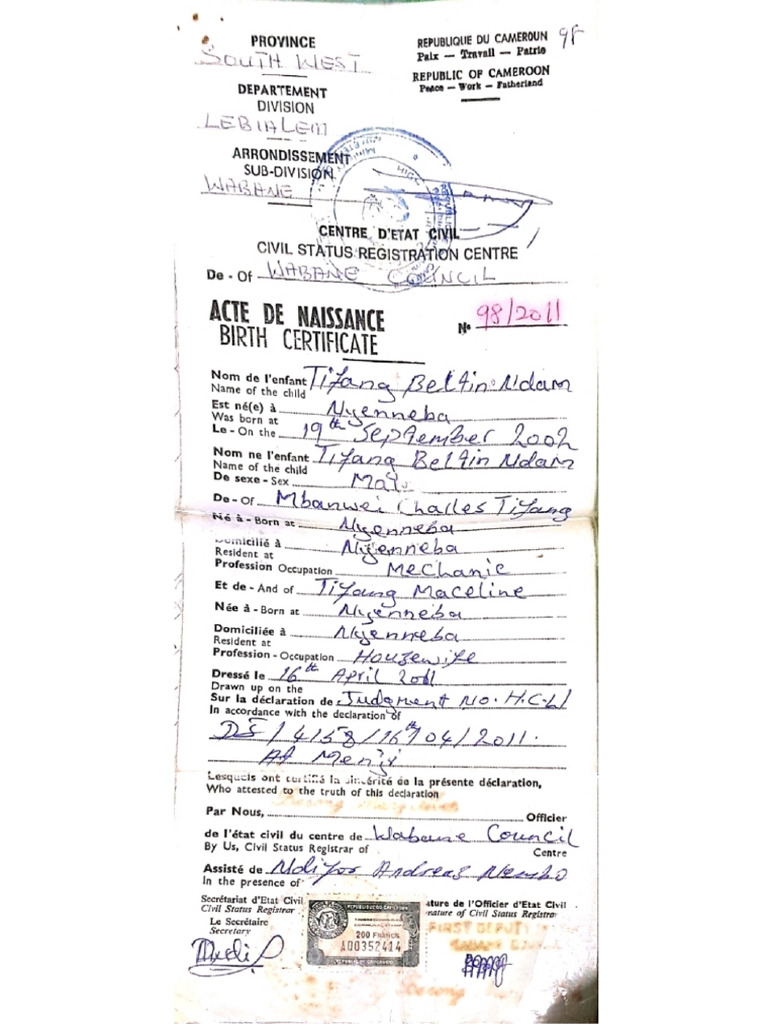 PROVINCE
SOUTH WEST
REPUBLIQUE DU CAMEROUN
Paix — Travail — Patrie
REPUBLIC OF CAMEROON
Peace — Work — Fatherland
98
DEPARTEMENT
DIVISION
LEBIALEM
ARRONDISSEMENT
SUB-DIVISION
WABANE
CENTRE D'ETAT CIVIL
CIVIL STATUS REGISTRATION CENTRE
De - Of WABANE COUNCIL
ACTE DE NAISSANCE
BIRTH CERTIFICATE
N° 98/2011
Nom de l'enfant Tifang Beltin Ndam
Name of the child
Est né(e) à Nyenneba
Was born at
Le - On the 19th September 2002
Nom ne l'enfant Tifang Beltin Ndam
Name of the child
De sexe - Sex Male
De - Of Mbanwei Challes Tifang
Né à - Born at Nyenneba
Domicilié à Nyenneba
Resident at
Profession Occupation Mechanic
Et de - And of Tifang Maceline
Née à - Born at Nyenneba
Domiciliée à Nyenneba
Resident at
Profession - Occupation Housewife
Dressé le 16th April 2011
Drawn up on the
Sur la déclaration de Judgment No. H.C.L/
In accordance with the declaration of
DS/4158/16th/04/2011.
At Menji
Lesquels ont certifié la sincérité de la présente déclaration,
Who attested to the truth of this declaration
Par Nous, Officier
de l'état civil du centre de Wabane Council
By Us, Civil Status Registrar of Centre
Assisté de Ndifor Andreas Nembo
In the presence of
Secrétariat d'Etat Civil
Civil Status Registrar
Le Secrétaire
Secretary
REPUBLIQUE DU CAMEROUN
200 FRANCS
A00352414
REPUBLIC OF CAMEROON
ature de l'Officier d'Etat Civil
nature of Civil Status Registrar
FIRST DEPUTY